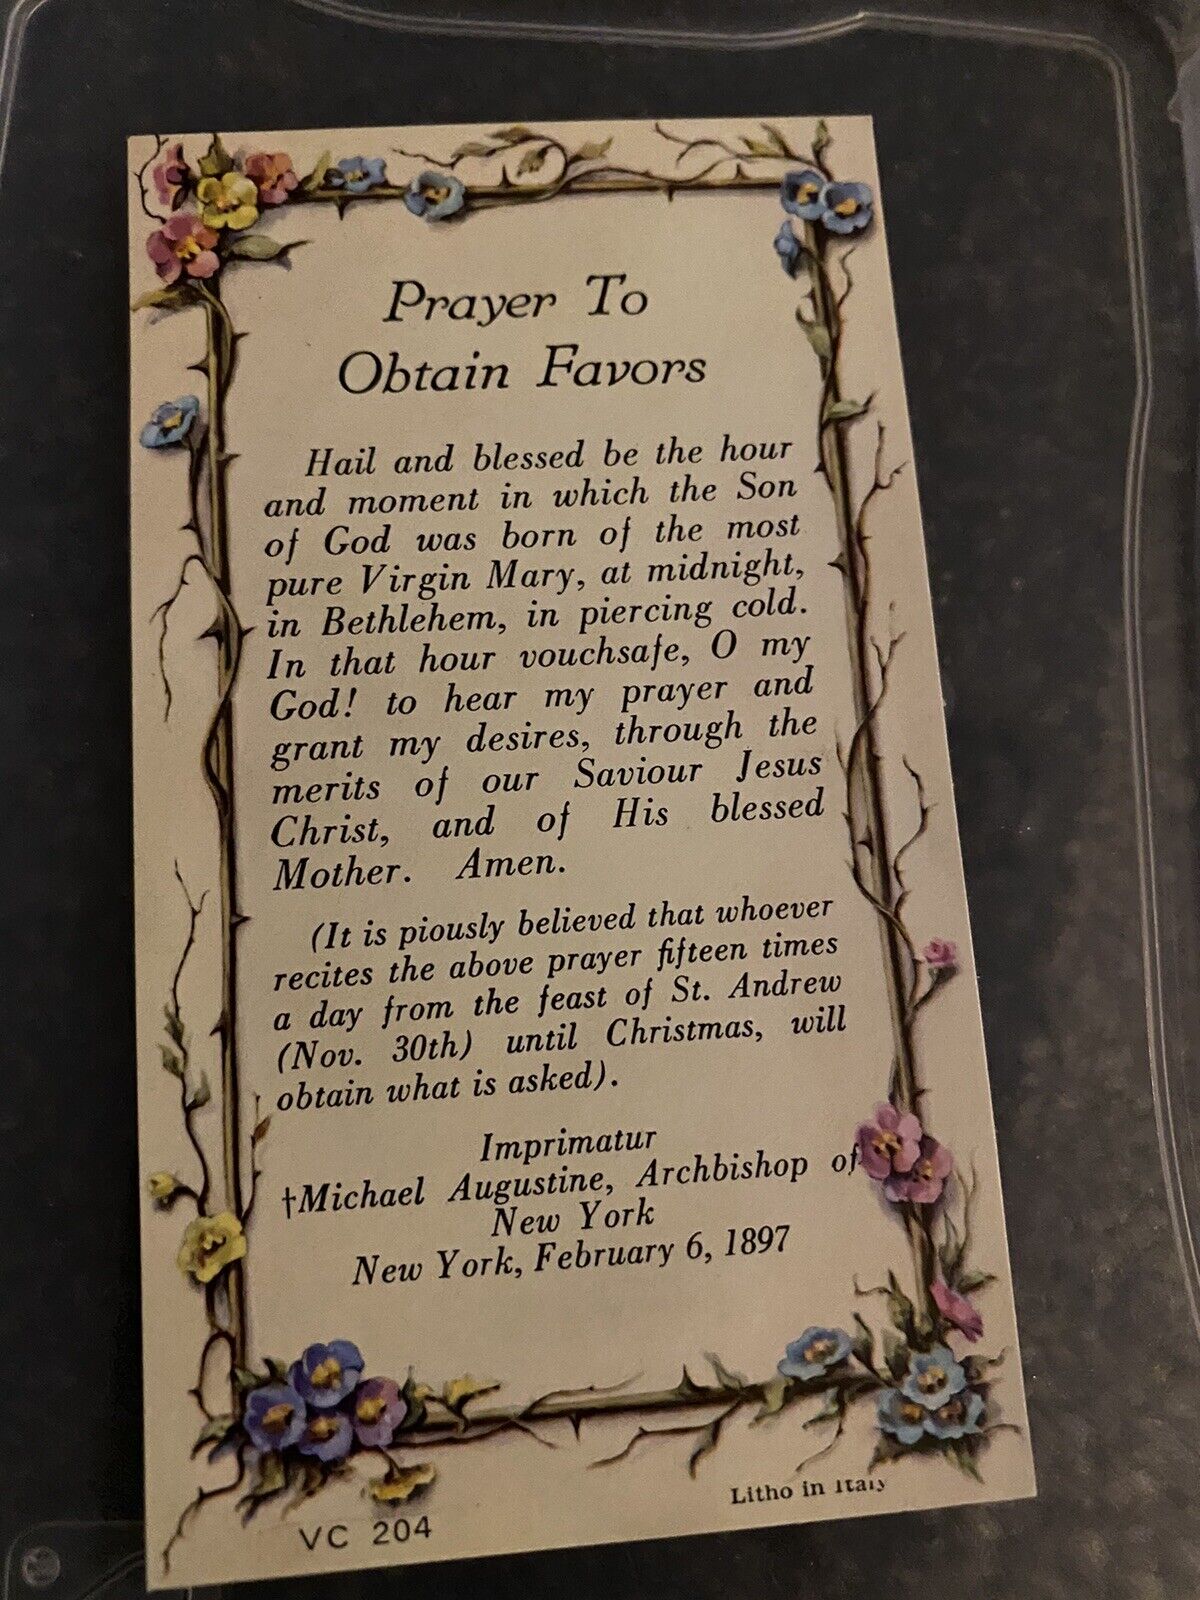 Prayer To
Obtain Favors
Hail and blessed be the hour
and moment in which the Son
of God was born of the most
pure Virgin Mary, at midnight,
in Bethlehem, in piercing cold.
In that hour vouchsafe, O my
God! to hear my prayer and
grant my desires, through the
merits of our Saviour Jesus
Christ, and of His blessed
Mother. Amen.
(It is piously believed that whoever
recites the above prayer fifteen times
a day from the feast of St. Andrew
(Nov. 30th) until Christmas, will
obtain what is asked).
Imprimatur
†Michael Augustine, Archbishop of
New York
New York, February 6, 1897
Litho in Italy
VC 204